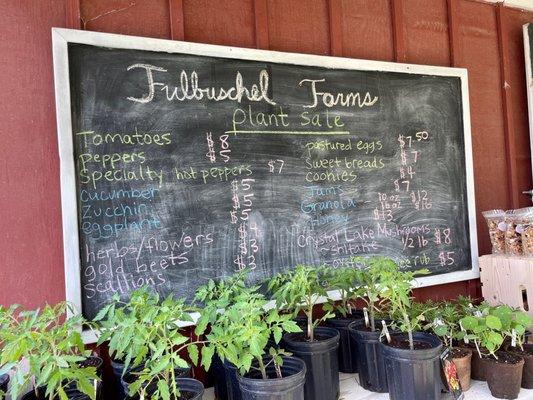 Fulbuschel Farms
plant sale
Tomatoes $8
peppers $5
Specialty hot peppers $7
cucumber $5
Zucchini $5
eggplant $5
herbs/flowers $4
gold beets $3
Scallions $3
pastured eggs $7.50
Sweet breads $7
cookies $4
Jams $7
Granola 10oz $12
16oz $16
Honey $13
Crystal Lake Mushrooms
shitake 1/2 lb $8
oyster
rub $5